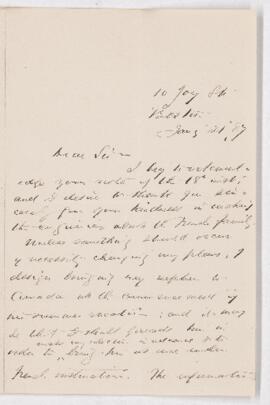 10 Joy St.
Boston
Jany 21/87
Dear Sir
I beg to acknowl-
edge your note of the 18th inst.
and I desire to thank you sin-
cerely for your kindness in making
the enquiries about the French family
Unless something should occur
necessity changing my plans, I
design bringing my nephew to
Canada at the commencement of
his summer vacation; and it may
be that I shall
make my selection in advance
order to bring him at once under
French instruction. The information